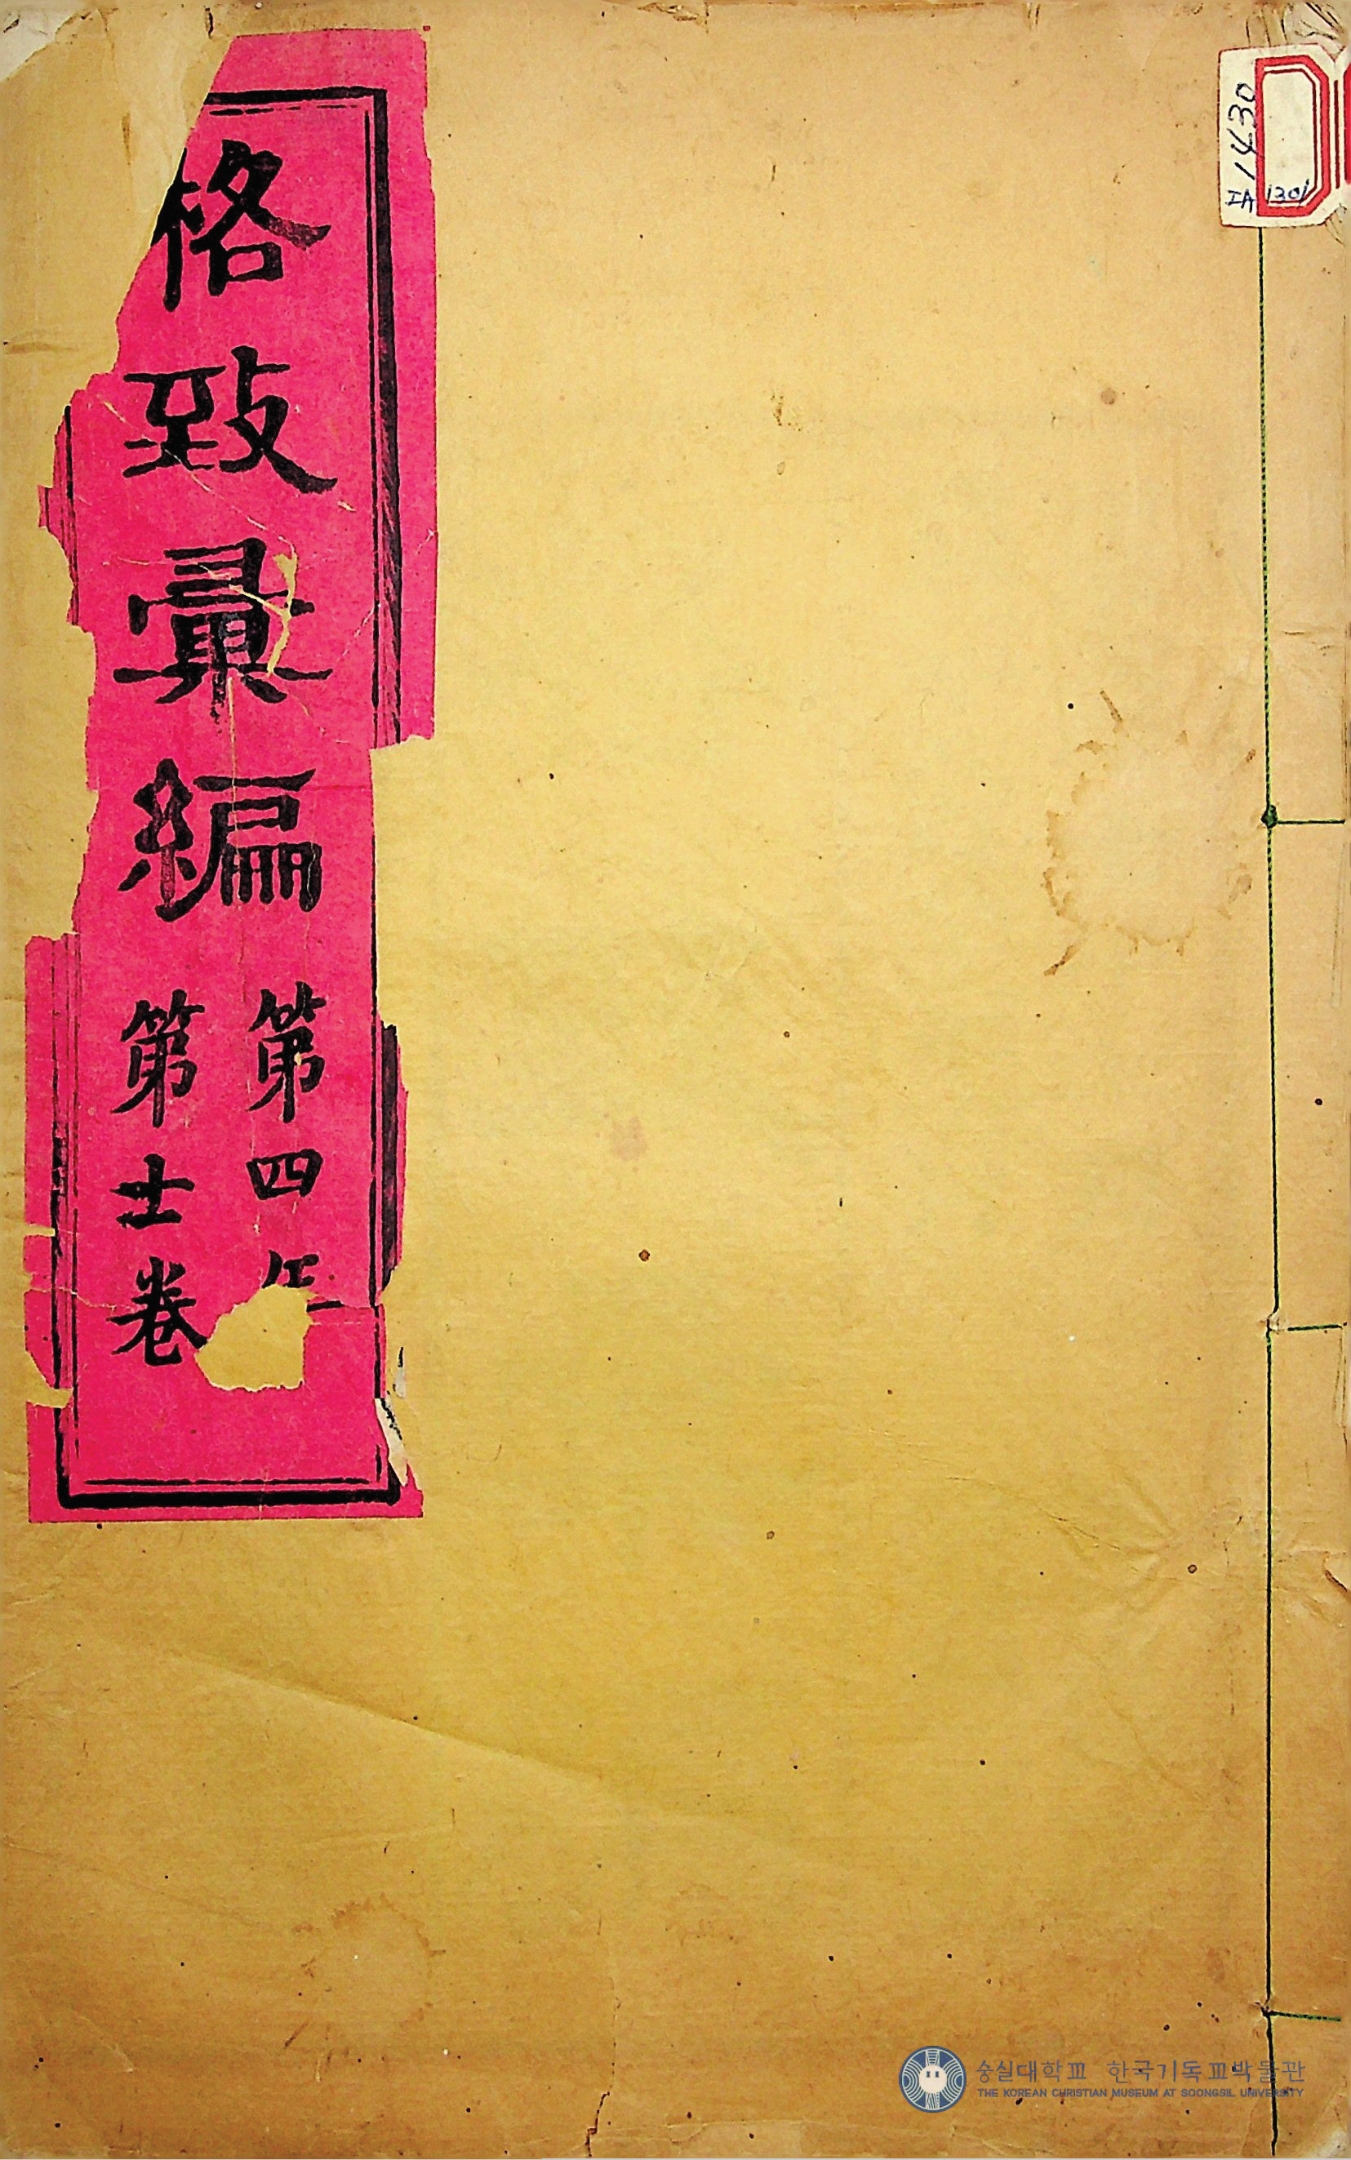 格致彙編
第四年
第十一卷
1430
IA 1301
숭실대학교 한국기독교박물관
THE KOREAN CHRISTIAN MUSEUM AT SOONGSIL UNIVERSITY